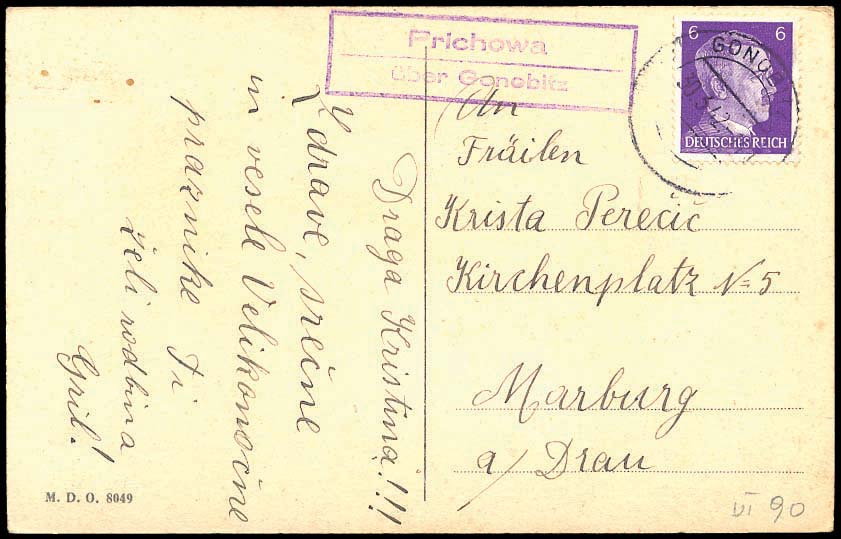 Prichowa
über Gonobitz
6 6
DEUTSCHES REICH
An
Fräilen
Krista Perečič
Kirchenplatz N=5
Marburg
a/ Drau
Draga Kristina!!!
Zdrave, srečne
in vesele Velikonočne
praznike Ti
želi rodbina
Gril!
M. D. O. 8049
VI 90